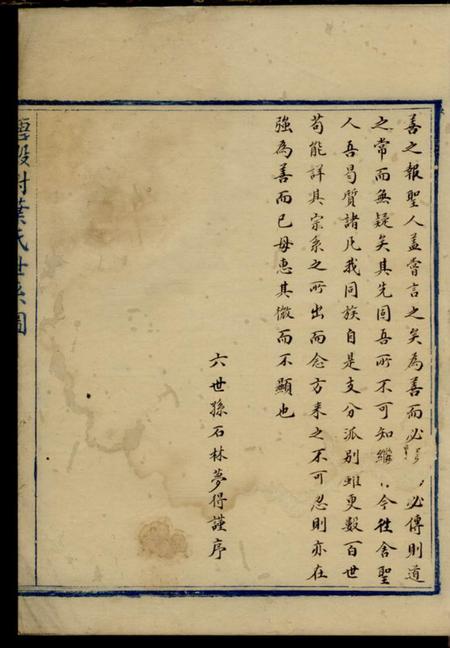 善之報聖人盖嘗言之矣為善而必必傳則道
之常而無疑矣其先固吾所不可知繼今徃舍聖
人吾曷質諸凡我同族自是支分派别雖更數百世
苟能詳其宗系之所出而念方来之不可忍則亦在
強為善而已毋患其微而不顯也
六世孫石林夢得謹序
葉氏世系圖